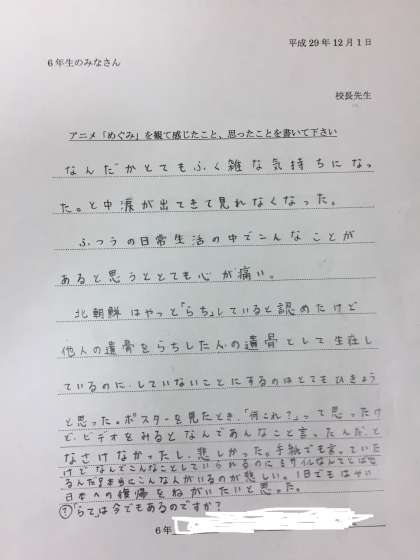 平成29年12月1日
6年生のみなさん
校長先生
アニメ「めぐみ」を観て感じたこと、思ったことを書いて下さい
なんだかとてもふく雑な気持ちになっ
た。と中涙が出てきて見れなくなった。
ふつうの日常生活の中でこんなことが
あると思うととても心が痛い。
北朝鮮はやっと「らち」していると認めたけど
他人の遺骨をらちした人の遺骨として生在し
ているのに、していないことにするのはとてもひきょう
と思った。ポスターを見たとき、「何これ？」って思ったけ
ど、ビデオをみるとなんであんなこと言ったんだと
なさけなかったし、悲しかった。手紙でも言っていた
けどなんでこんなことしていられるのにミサイルなんてとばせ
るんだ？本当にこんな人がいるのが悲しい。1日でもはやい
日本への復帰をねがいたいと思った。
?「らち」は今でもあるのですか？
6年